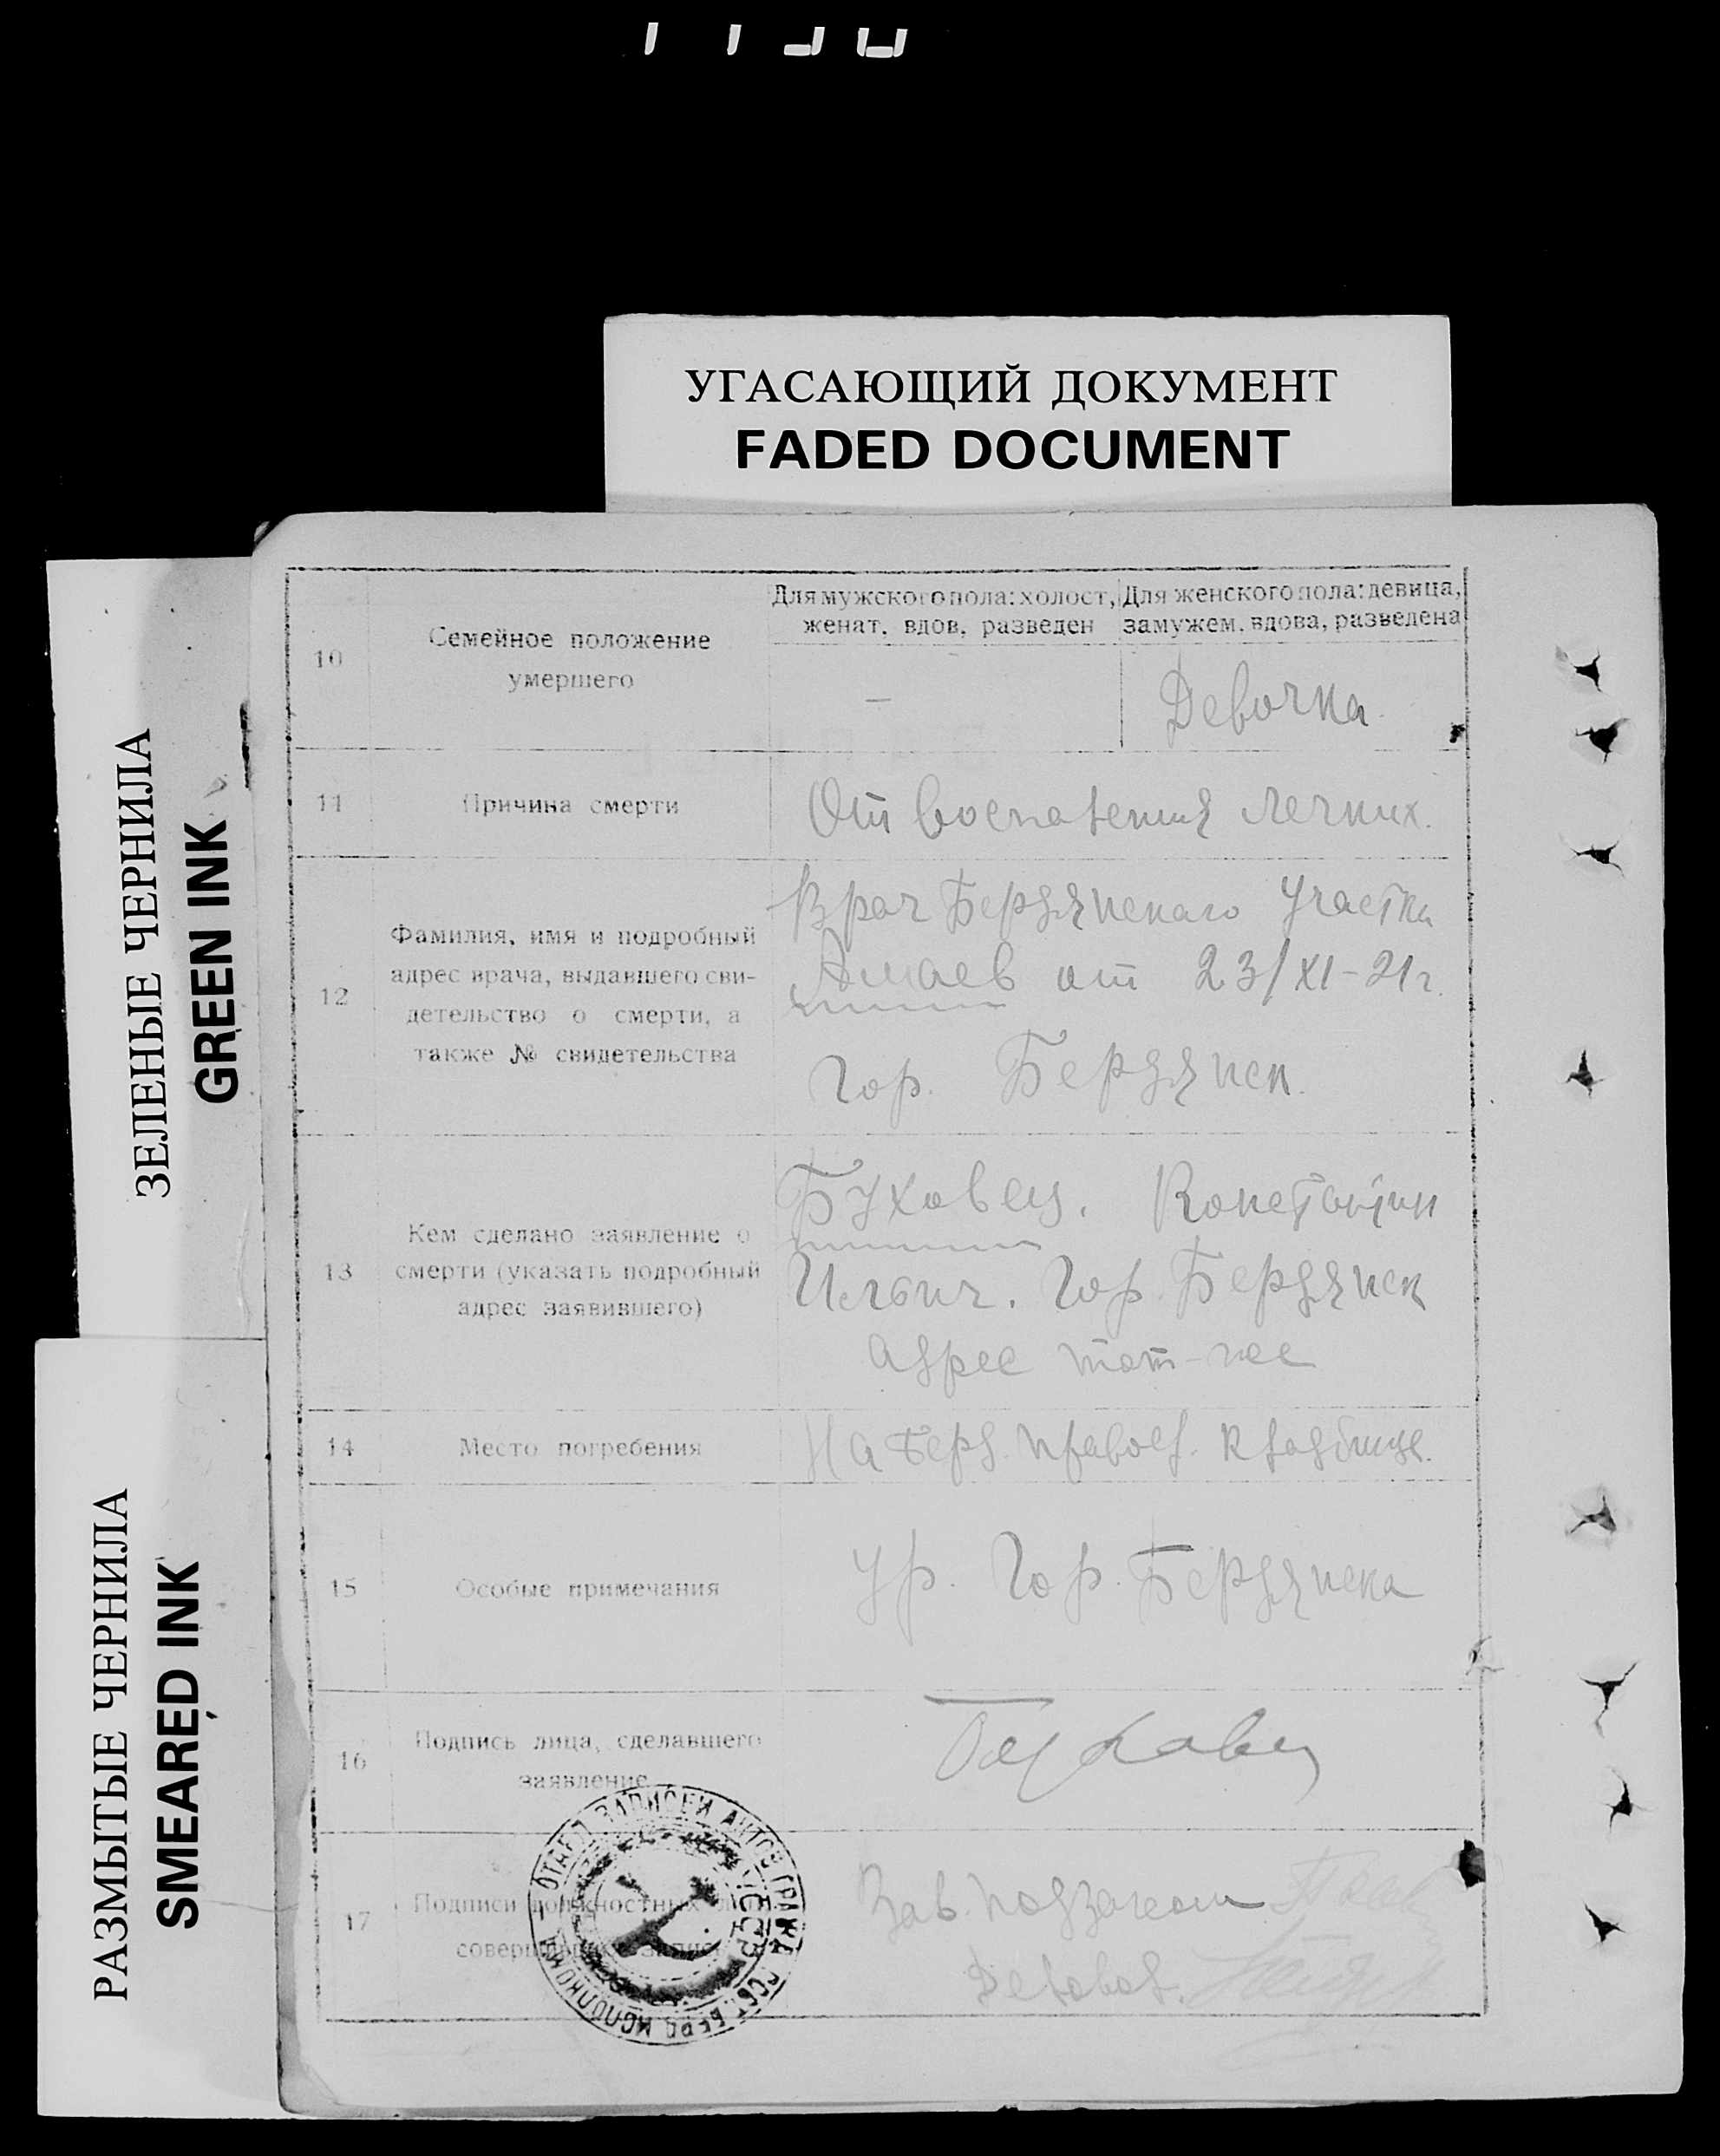 УГАСАЮЩИЙ ДОКУМЕНТ
FADED DOCUMENT
ЗЕЛЕНЫЕ ЧЕРНИЛА
GREEN INK
РАЗМЫТЫЕ ЧЕРНИЛА
SMEARED INK
10
Семейное положение
умершего
Для мужского пола: холост,
женат, вдов, разведен
Для женского пола: девица,
замужем, вдова, разведена
—
Девочка
11
Причина смерти
От воспаления легких.
12
Фамилия, имя и подробный
адрес врача, выдавшего сви-
детельство о смерти, а
также № свидетельства
Врач Бердянскаго Участка
от 23/XI-21 г.
Гор. Бердянск.
13
Кем сделано заявление о
смерти (указать подробный
адрес заявившего)
Буховец. Константин
Ильич. Гор. Бердянск
адрес тот-же
14
Место погребения
На Берд. правосл. кладбище.
15
Особые примечания
Ур. Гор. Бердянска
16
Подпись лица, сделавшего
заявление
Буховец
17
Подписи должностных лиц,
совершивших запись
Зав. подзагсом
Деловод.
ОТДЕЛ ЗАПИСЕЙ АКТОВ ГРАЖД. СОСТ. БЕРД ИСПОЛКОМА
УССР